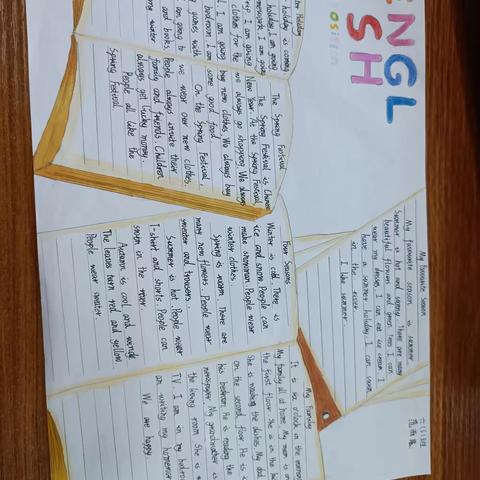 ENGLISH
My Favourite Season
My favourite season is summer.
Summer is hot and sunny. There are many
beautiful flowers and green trees. I can
wear my dress. I can eat ice cream. I
have a summer holiday. I can swim
in the river.
I like summer.
Holiday
holiday is coming
holiday, I am going
homework. I am going
I am going
clothes for the
I am going
bedroom. I am
games with
am going to
and books.
winter
The Spring Festival
The Spring Festival is Chinese
New Year. At the Spring Festival,
we always go shopping. We always
buy new clothes. We always buy
some good food.
On the Spring Festival,
we wear our new clothes.
People always invite their
family and friends. Children
always get lucky money.
People all like the
Spring Festival.
Four Seasons
Winter is cold. There is
ice and snow. People can
make snowman. People wear
winter clothes.
Spring is warm. There are
many new flowers. People wear
sweater and trousers.
Summer is hot. People wear
T-shirt and shorts. People can
swim in the river.
Autumn is cool and windy.
The leaves turn red and yellow.
People wear sweater.
My Family
It is six o'clock in the morning.
My family all at home. My mum is on
the first floor. She is in the
She is washing the dishes. My dad
on the second floor. He is
his bedroom. He is reading the
newspaper. My grandmother is
the living room. She is
TV. I am in my bedroom
am writing my homework
We are happy